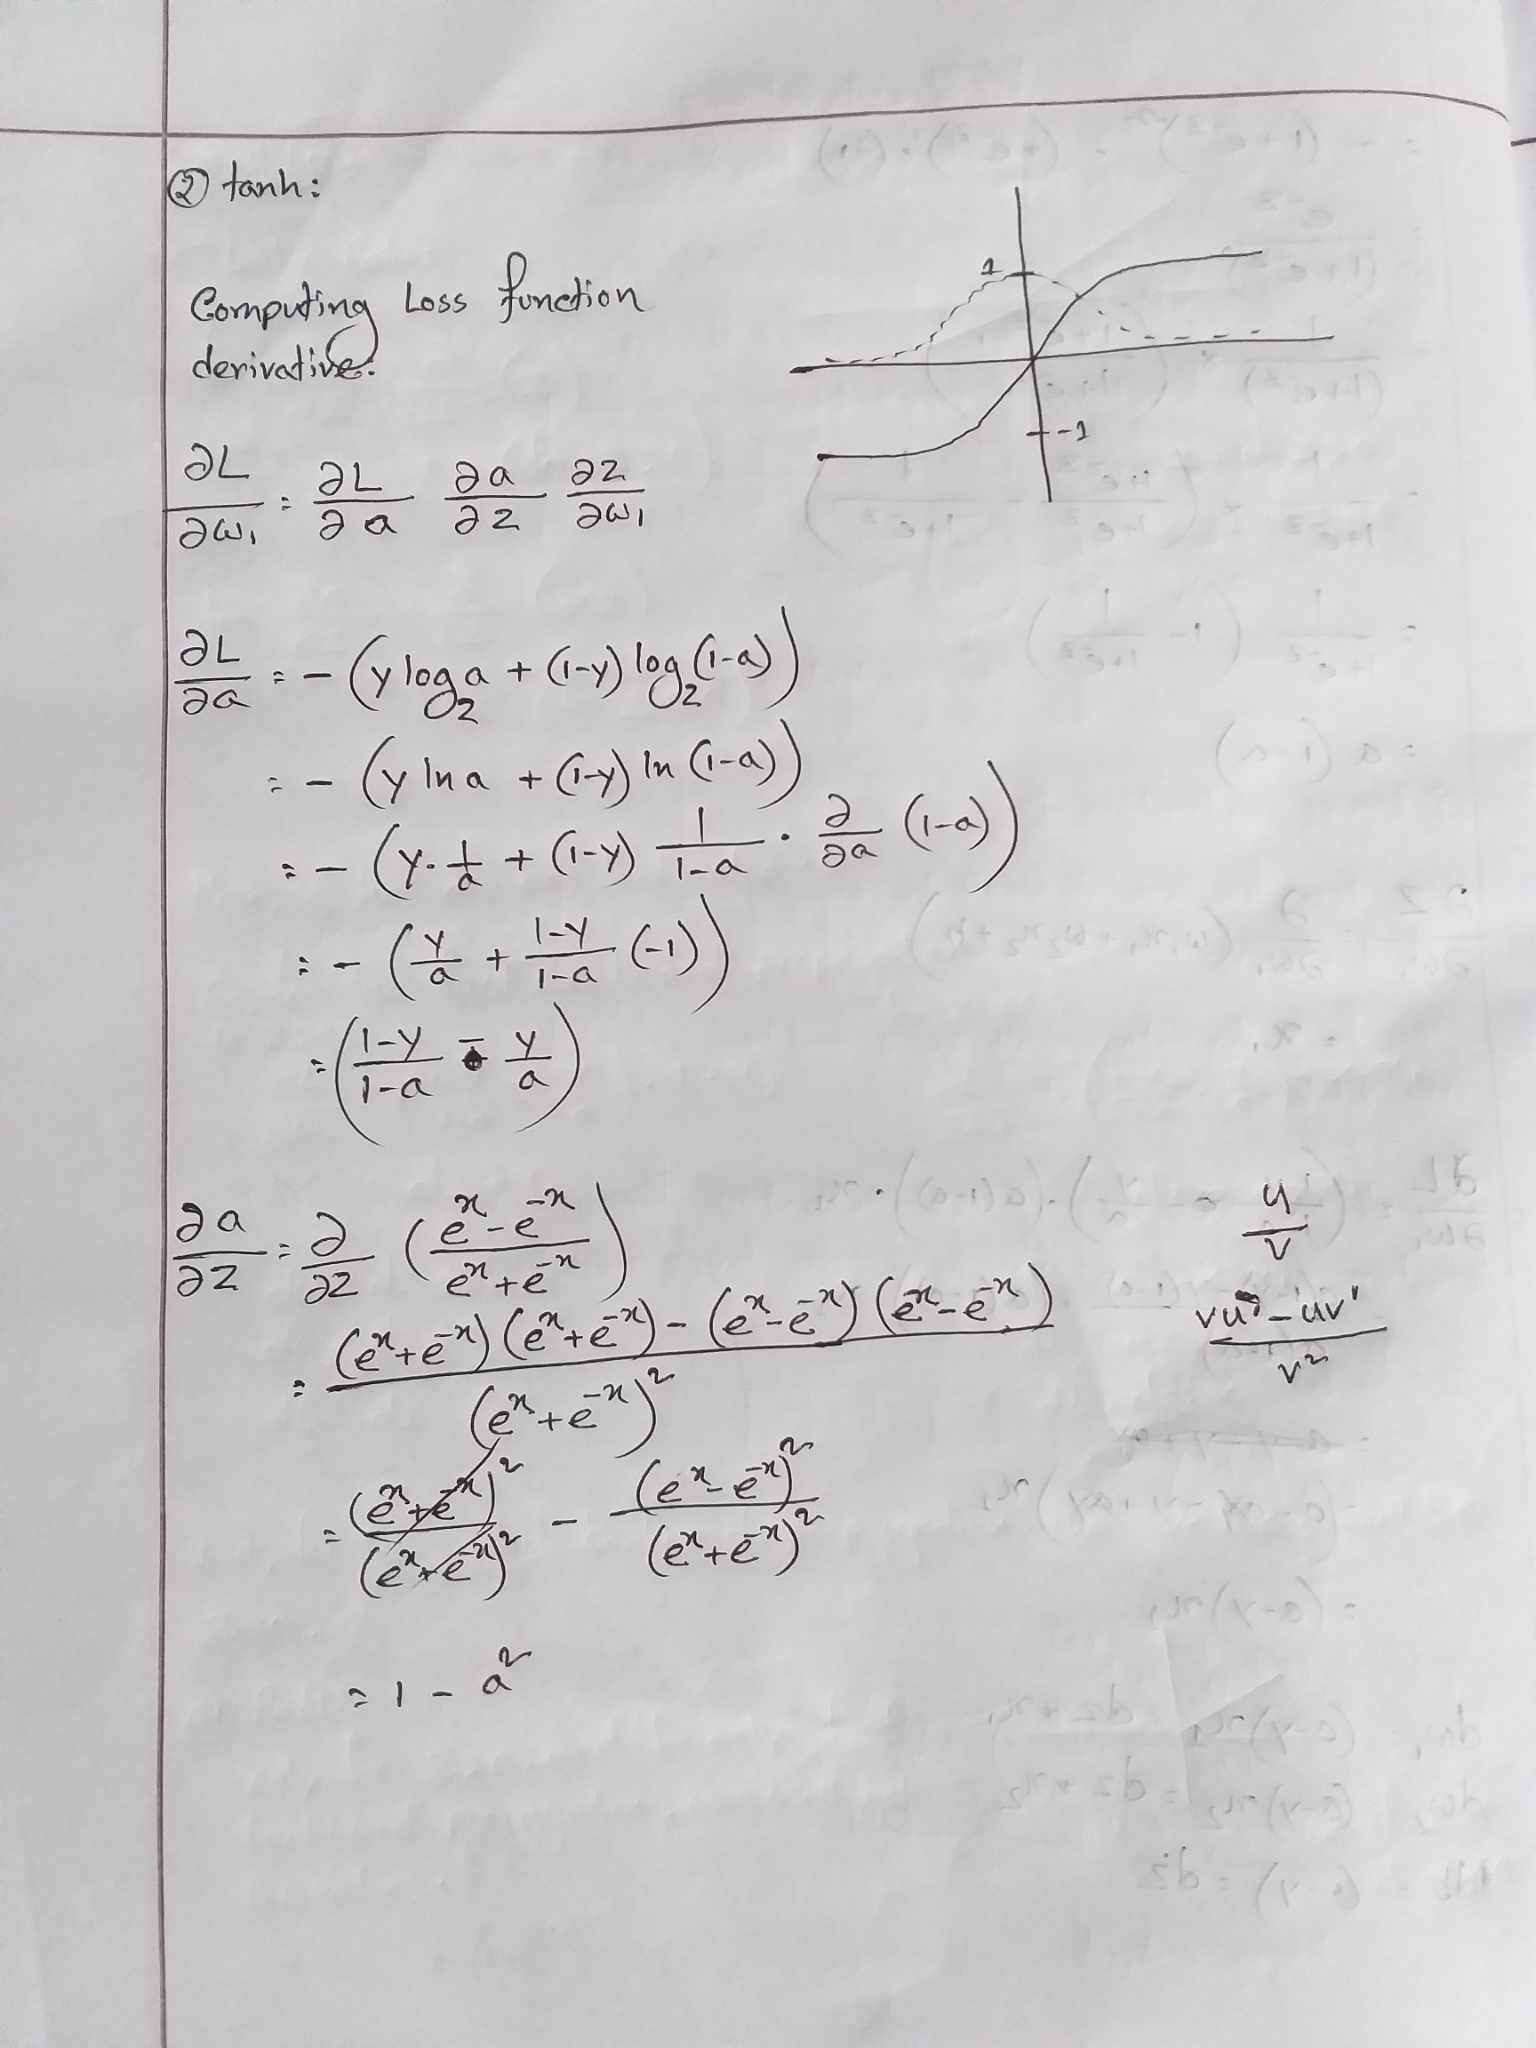 ② tanh:
1
-1
Computing Loss function
derivative:
∂L/∂w₁ = ∂L/∂a ∂a/∂z ∂z/∂w₁
∂L/∂a = - (y log₂ a + (1-y) log₂ (1-a))
= - (y ln a + (1-y) ln (1-a))
= - (y · 1/a + (1-y) 1/(1-a) · ∂/∂a (1-a))
= - (y/a + (1-y)/(1-a) (-1))
= ((1-y)/(1-a) - y/a)
∂a/∂z = ∂/∂z ((eˣ - e⁻ˣ)/(eˣ + e⁻ˣ))
u/v
= ((eˣ + e⁻ˣ)(eˣ + e⁻ˣ) - (eˣ - e⁻ˣ)(eˣ - e⁻ˣ))/(eˣ + e⁻ˣ)²
(vu' - uv')/v²
= (eˣ + e⁻ˣ)²/(eˣ + e⁻ˣ)² - (eˣ - e⁻ˣ)²/(eˣ + e⁻ˣ)²
= 1 - a²